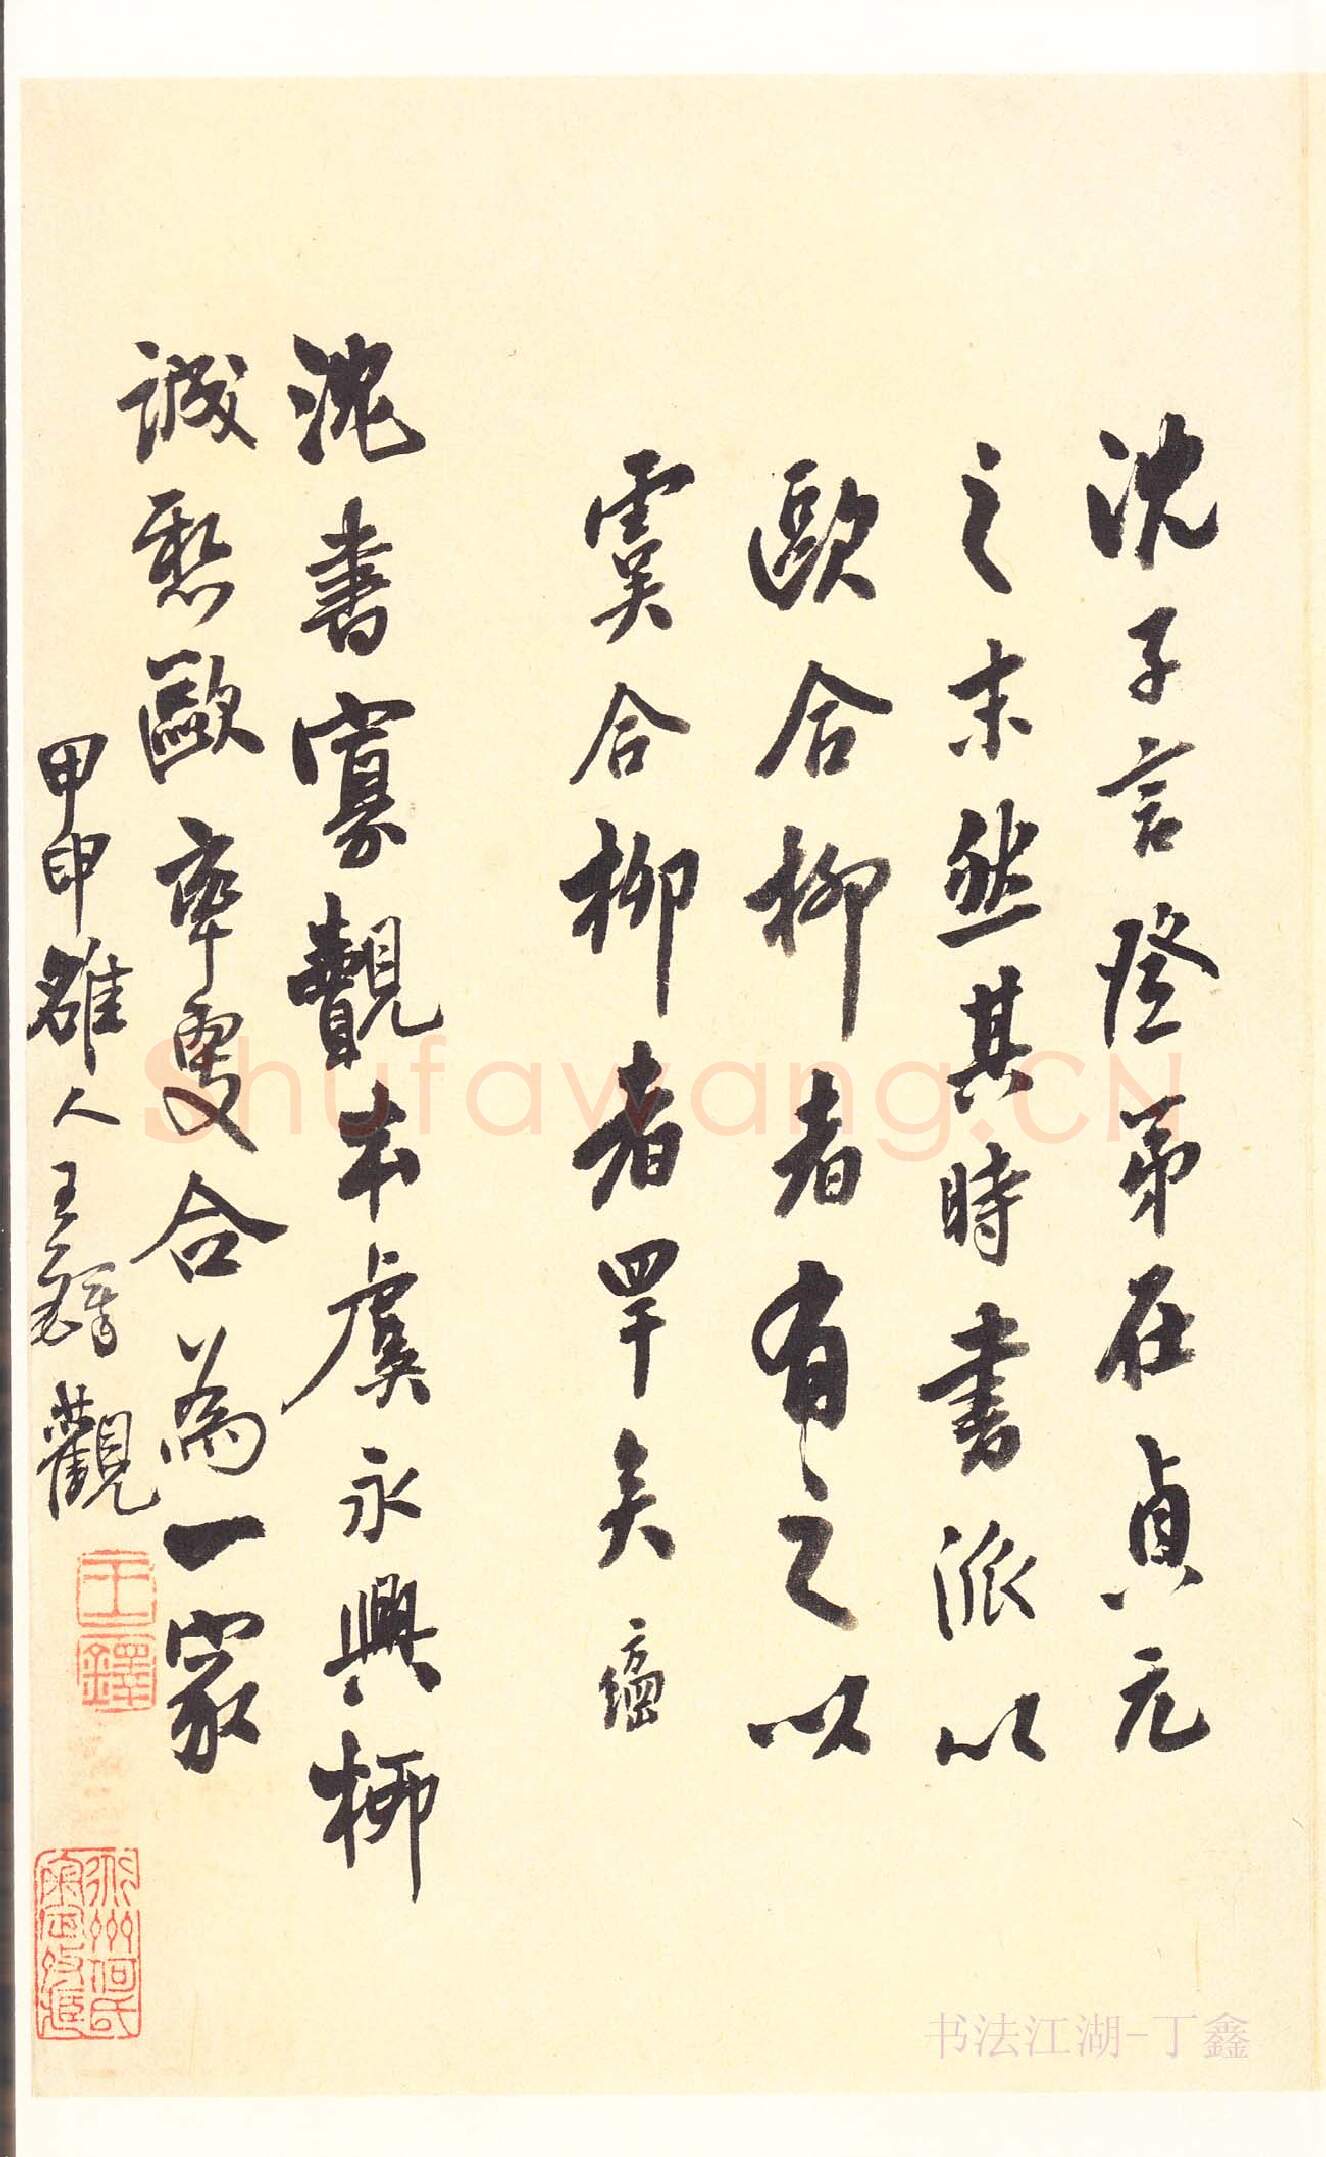 沈子言登弟在貞元
之末然其時書派以
歐合柳者有之以
虞合柳者罕矣
沈書寡覿本虞永興柳
誠懸歐率更合為一家
甲申雒人王鐸觀
王鐸
Shufawang.CN
书法江湖-丁鑫